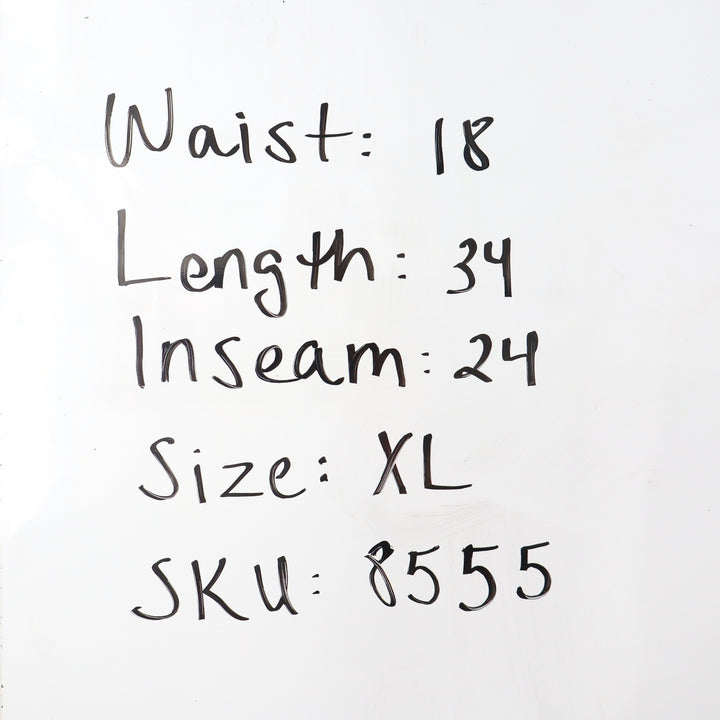 Waist: 18
Length: 34
Inseam: 24
Size: XL
SKU: 8555